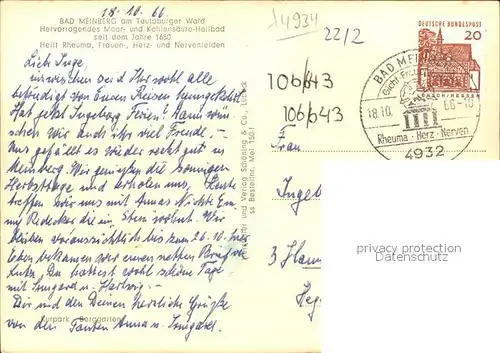 18.10.66
BAD MEINBERG am Teutoburger Wald
Hervorragendes Moor- und Kohlensäure-Heilbad
seit dem Jahre 1680
Heilt Rheuma, Frauen-, Herz- und Nervenleiden
Liebe Inge,
inzwischen seid Ihr wohl alle
befriedigt von Euren Reisen heimgekehrt.
Hat jetzt Ingeborg Ferien? Dann wün-
schen wir auch ihr viel Freude. -
Uns gefällt es wieder recht gut in
Meinberg. Wir genießen die sonnigen
Herbsttage und erholen uns. Heute
treffen wir uns mit Annas Nichte
die in wohnt. Wir
bleiben voraussichtlich bis zum 26.10. hier
bekamen wir einen netten Brief
Du hattest wohl schöne Tage
mit Irmgard u. Hartwig. -
Dir und den Deinen herzliche Grüße
von den Tanten Anna u. Irmgard.
Kurpark - Berggarten
und Verlag Schöning & Co., Lübeck
Bestellnr. Mei 150
14934
22/2
106643
106643
Frau
Ingeb
3 Hann
DEUTSCHE BUNDESPOST
20
LORSCH/HESSEN
BAD MEIN
18.10.
66-18
Rheuma · Herz · Nerven
4932
privacy protection
Datenschutz